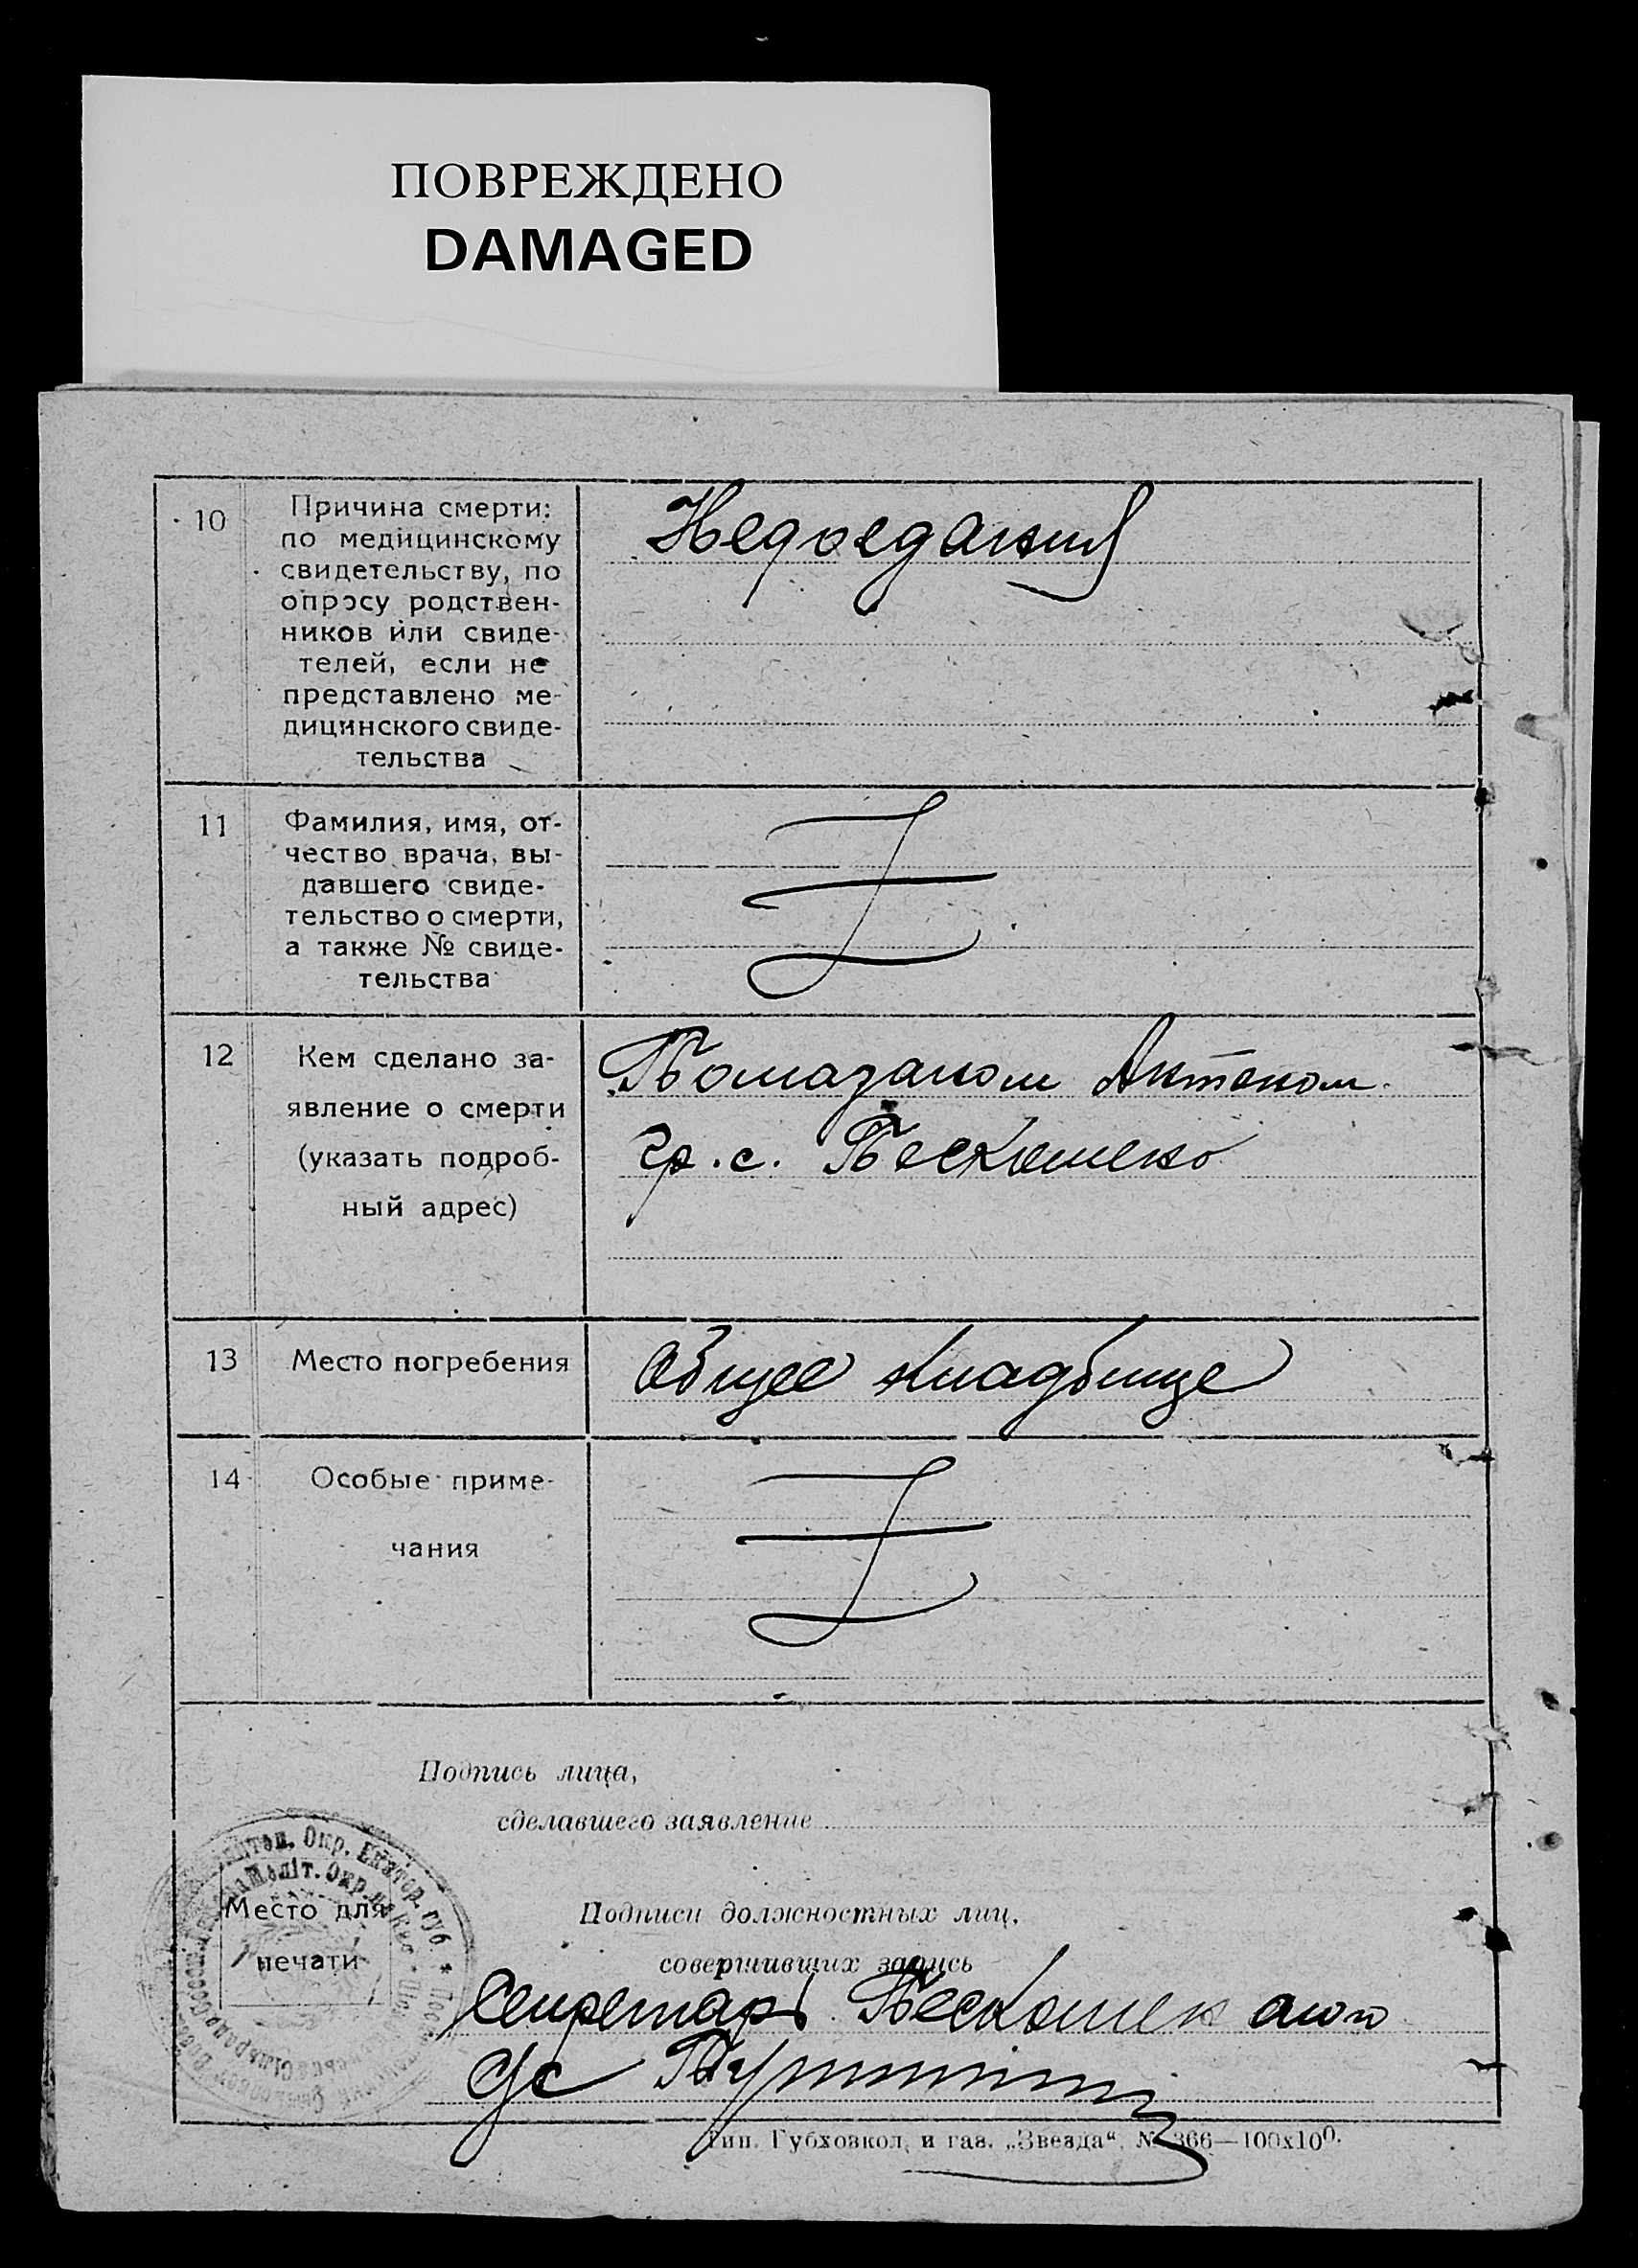 ПОВРЕЖДЕНО
DAMAGED
10
Причина смерти:
по медицинскому
свидетельству, по
опросу родствен-
ников или свиде-
телей, если не
представлено ме-
дицинского свиде-
тельства
Недоедания
11
Фамилия, имя, от-
чество врача, вы-
давшего свиде-
тельство о смерти,
а также № свиде-
тельства
12
Кем сделано за-
явление о смерти
(указать подроб-
ный адрес)
Помазаном Антоном
гр. с.
13
Место погребения
Общее кладбище
14
Особые приме-
чания
Подпись лица,
сделавшего заявление
Окр. Екатор. губ.
Меліт. Окр.
Место для
печати
Подписи должностных лиц,
совершивших запись
Секретарь
с/с
Тип. Губховкол. и газ. „Звезда“, № 366—100х100.